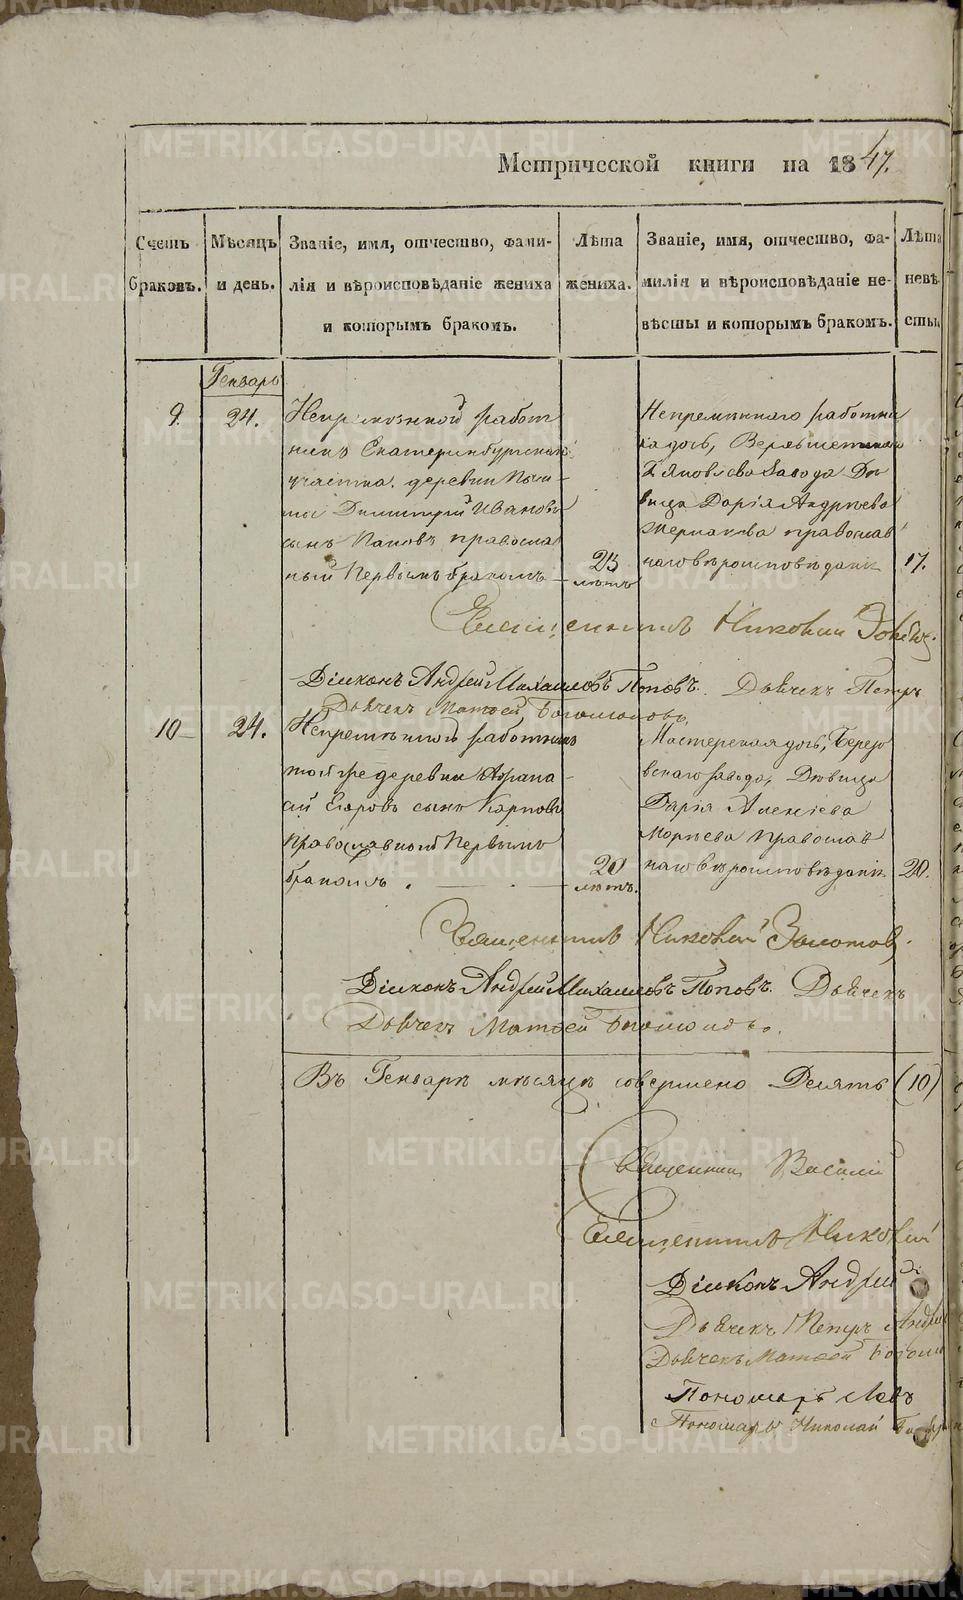 Метрической книги на 1847.
Счетъ браковъ.
Мѣсяцъ и день.
Званіе, имя, отчество, фами-
лія и вѣроисповѣданіе жениха
и которымъ бракомъ.
Лѣта
жениха.
Званіе, имя, отчество, фа-
милія и вѣроисповѣданіе не-
вѣсты и которымъ бракомъ.
Лѣта
невѣ
сты.
Генварь
9. 24.
Непремѣнной работ
никъ Екатеринбургскаго
участка, деревни
Димитрій Ивановъ
сынъ Паповъ православ
ный Первымъ бракомъ
25
лѣтъ
Непремѣннаго работни
ка дочь,
Завода Дѣ
вица Дарія Андреева
православ
наго вѣроисповѣданія
17.
Священникъ Николай
Діаконъ Андрей Михаиловъ Поповъ. Дьячекъ Петръ
Дьячекъ Матѳей Богомоловъ
10 24.
Непремѣнной работникъ
той же деревни Афана
сій Егоровъ сынъ Карповъ
православной Первымъ
бракомъ.
20
лѣтъ.
Мастерская дочь, Березо
вскаго завода, Дѣвица
Дарія Алексіева
православ
наго вѣроисповѣданія
20.
Священникъ Николай Золотовъ.
Діаконъ Андрей Михаиловъ Поповъ. Дьячекъ
Дьячекъ Матѳей Богомоловъ.
Въ Генварѣ мѣсяцѣ совершено Десять (10)
Священникъ Василій
Священникъ Николай
Діаконъ Андрей
Дьячекъ Петръ Андре
Дьячекъ Матѳей Богомол
Пономарь Левъ
Пономарь Николай
METRIKI.GASO-URAL.RU